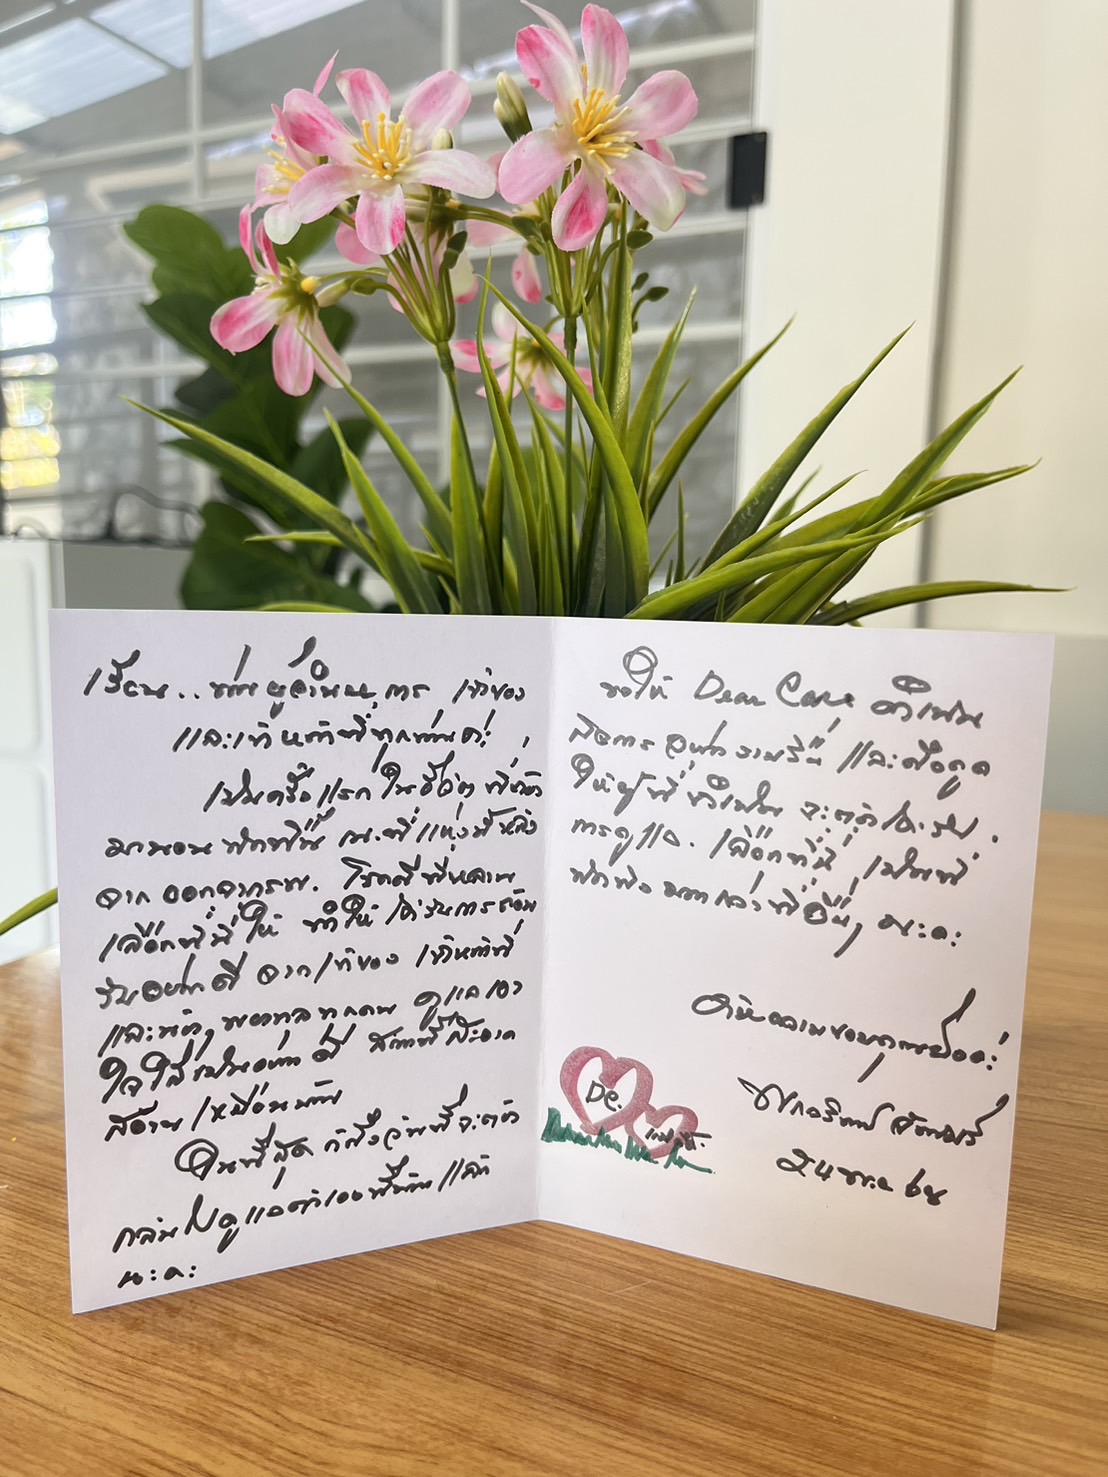 เรียน.. ท่านผู้อำนวยการ เจ้าของ
และเจ้าหน้าที่ทุกท่านค่ะ!
เป็นครั้งแรก ในชีวิต ที่
มานอนพักฟื้น ณ.ที่แห่งนี้ หลัง
จาก ออกจากรพ. โชคดีที่หลาน
เลือกที่นี่ให้ ทำให้ ได้รับการต้อน
รับอย่างดี จากเจ้าของ เจ้าหน้าที่
และพยาบาลทุกคน ดูแลเอา
ใจใส่เป็นอย่างดี สถานที่สะอาด
สะอ้าน เหมือนบ้าน
ในที่สุด ก็ถึงวันที่จะต้อง
กลับไปดูแลตัวเองที่บ้านแล้ว
นะคะ
ขอให้ Dear Care ดำเนิน
กิจการ อย่างราบรื่น และดึงดูด
ให้ผู้ที่จำเป็น จะต้องได้รับ
การดูแล. เลือกที่นี่ เป็นที่
พักพิง มากกว่าที่อื่นๆ นะคะ
ด้วยความขอบคุณยิ่งค่ะ!
De.
24 พ.ย 68